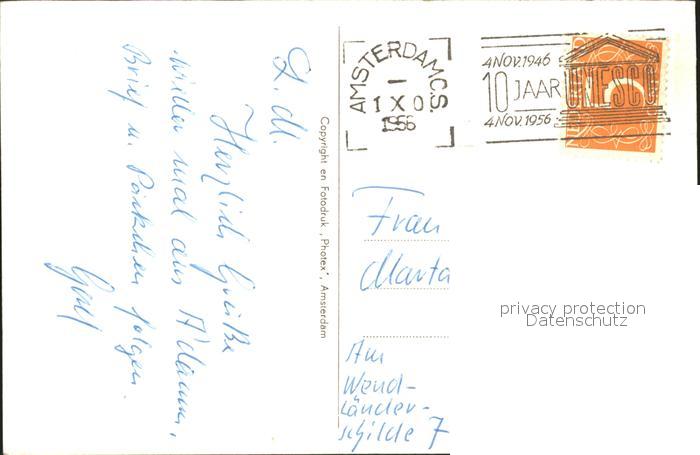 L. M.
Herzlich Grüße
wieder mal aus A'dam,
Brief u. Päckchen folgen.
Copyright en Fotodruk „Photex”, Amsterdam
AMSTERDAM C.S.
1 X 0
1956
4 NOV. 1946
10 JAAR UNESCO
4 NOV. 1956
5
Frau
Marta
Am
Wend-
länder-
schilde 7
privacy protection
Datenschutz